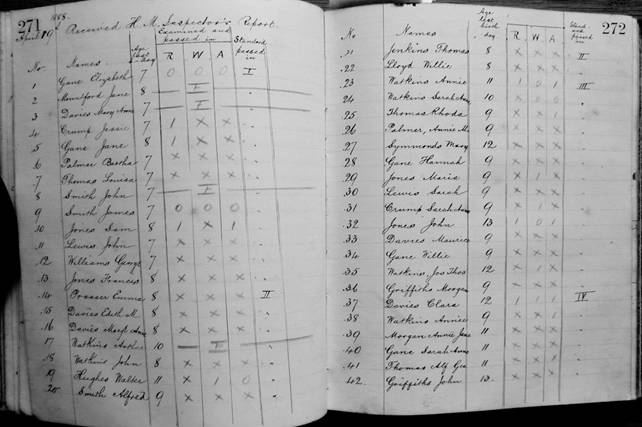 271
1888.
April 19th Received H. M. Inspector's Report.
Examined and passed in
Standard passed in
No. Names Age last B. day R W A
1 Gane Elizabeth 7 0 0 0 I
2 Mountford Jane 8 I "
3 Davies Mary Anne 7 I "
4 Crump Jessie 7 1 x x "
5 Gane Jane 8 1 x x "
6 Palmer Bertha 7 x x x "
7 Thomas Louisa 7 x x x "
8 Smith John 7 I "
9 Smith James 7 0 0 0 "
10 Jones Sam 8 1 x 1 "
11 Lewis John 7 x x x "
12 Williams George 7 x x x "
13 Jones Frances 8 x x x "
14 Prosser Emma 8 x x x II
15 Davies Edith M. 8 x x x "
16 Davies Margt Ann 8 x x x "
17 Watkins Arthur 10 I "
18 Watkins John 8 x x x "
19 Hughes Walter 11 x 1 0 "
20 Smith Alfred 9 x x x "
272
No Names Age last birth day R W A Stand and passed in
21 Jenkins Thomas 8 x x x II
22 Lloyd Willie 8 x x x "
23 Watkins Annie 11 1 0 1 III
24 Watkins Sarah Ann 10 x 0 0 "
25 Thomas Rhoda 9 x x x "
26 Palmer, Annie M. 9 x x x "
27 Symmonds Mary 12 x x x "
28 Gane Hannah 9 x x x "
29 Jones Maria 9 x x x "
30 Lewis Sarah 9 x x x "
31 Crump Sarah Ann 9 x x x "
32 Jones John 13 1 0 1 "
33 Davies Maurice 9 x x x "
34 Gane Willie 9 x x x "
35 Watkins Jos Thos 12 x 1 x "
36 Griffiths Morgan 9 x x x "
37 Davies Clara 12 x 1 1 IV
38 Watkins Annie 9 x x x "
39 Morgan Annie Jane 11 x x x "
40 Gane Sarah Anne 11 x x 1 "
41 Thomas Alf Geo 11 x x x "
42. Griffiths John 12 x x x "